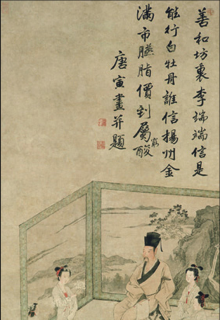 善和坊裏李端端信是
能行白牡丹誰信揚州金
滿市臙脂價到屬窮酸
唐寅畫并題